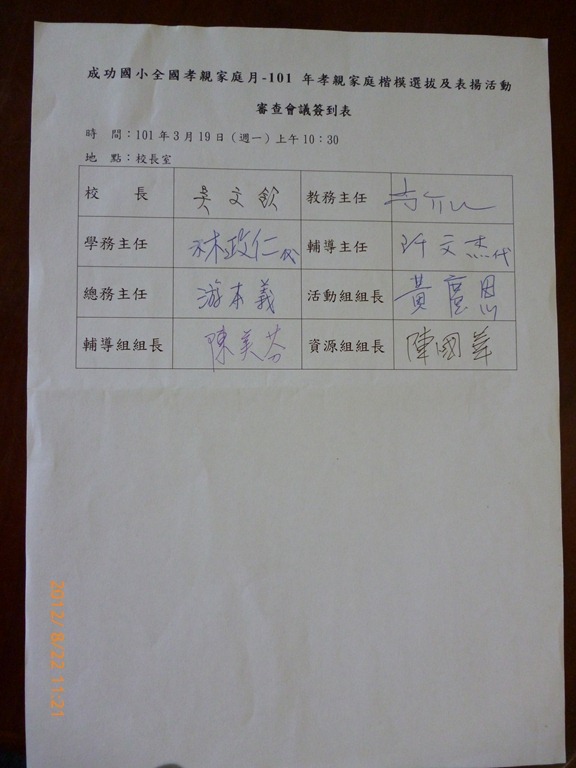 成功國小全國孝親家庭月-101 年孝親家庭楷模選拔及表揚活動
審查會議簽到表
時 間：101年3月19日（週一）上午10：30
地 點：校長室
校 長 吳文欽 教務主任
學務主任 林政仁代 輔導主任 許文杰代
總務主任 游本義 活動組組長 黃慶恩
輔導組組長 陳美芬 資源組組長 陳國華
2012/ 8/22 11:21